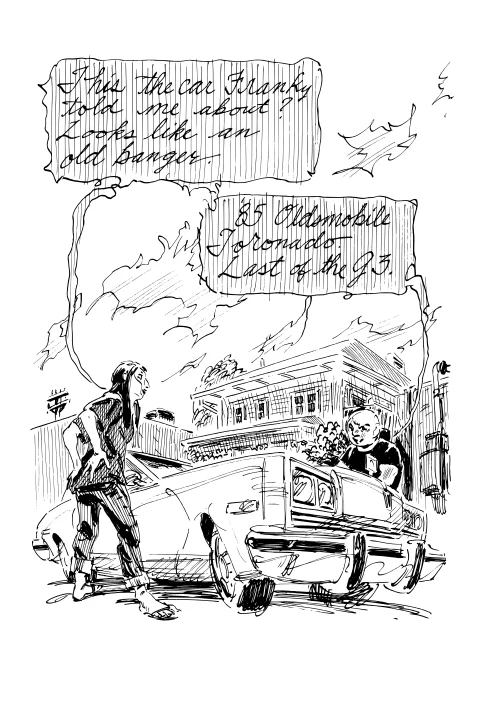 This the car Franky
told me about?
Looks like an
old banger.
'85 Oldsmobile
Toronado
Last of the G3.